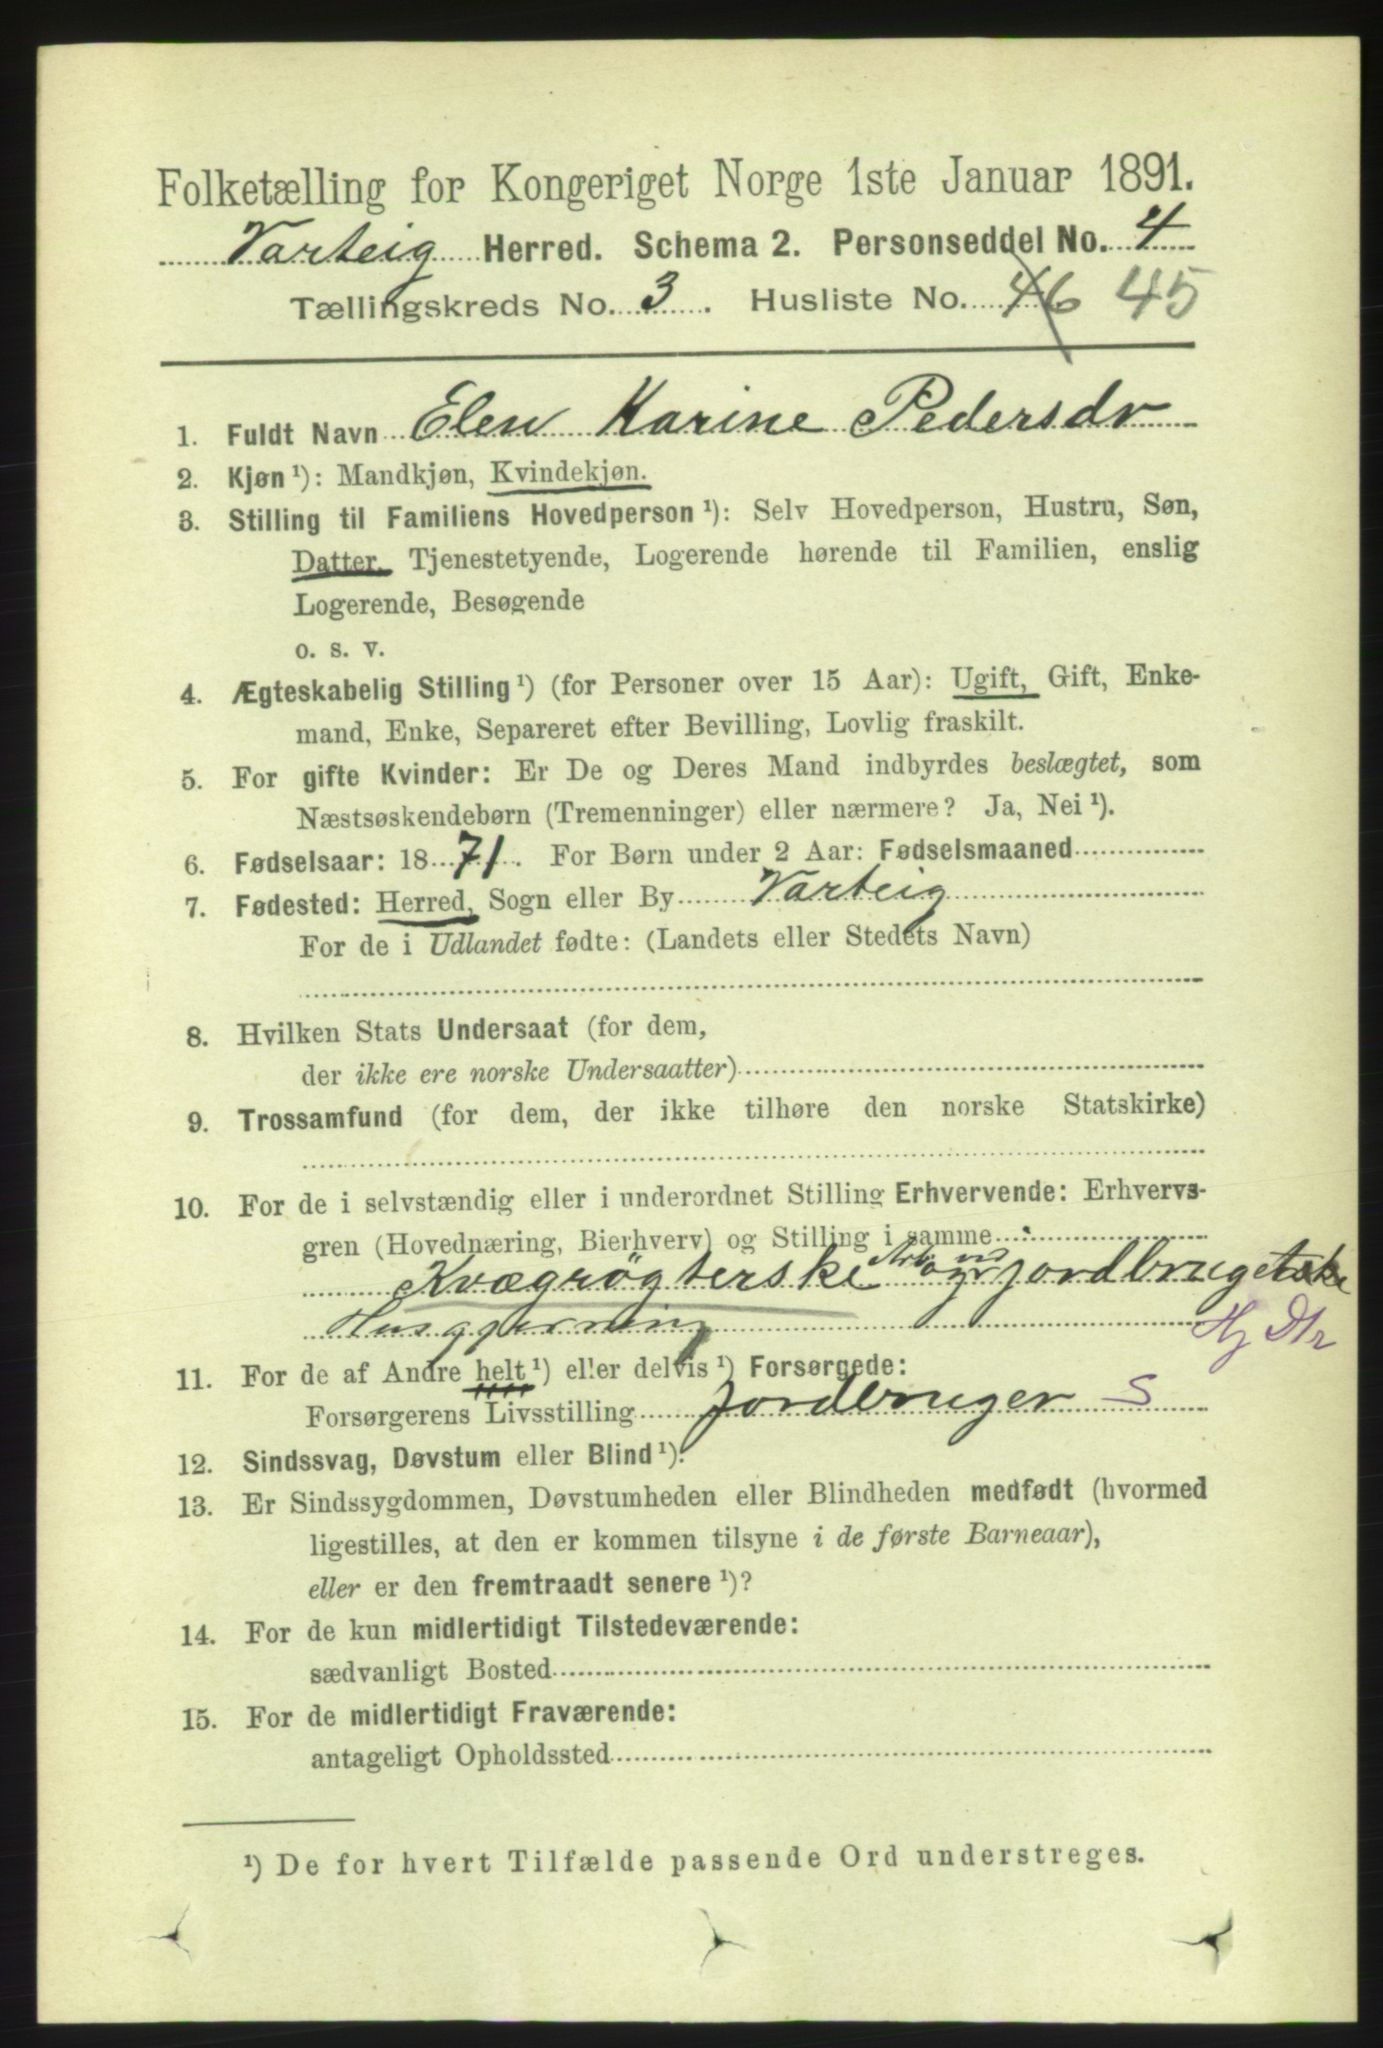 Folketælling for Kongeriget Norge 1ste Januar 1891.
Varteig Herred. Schema 2. Personseddel No. 4
Tællingskreds No. 3. Husliste No. 46 45
1. Fuldt Navn Elen Karine Pedersdr
2. Kjøn ¹): Mandkjøn, Kvindekjøn.
3. Stilling til Familiens Hovedperson ¹): Selv Hovedperson, Hustru, Søn,
Datter, Tjenestetyende, Logerende hørende til Familien, enslig
Logerende, Besøgende
o. s. v.
4. Ægteskabelig Stilling ¹) (for Personer over 15 Aar): Ugift, Gift, Enke-
mand, Enke, Separeret efter Bevilling, Lovlig fraskilt.
5. For gifte Kvinder: Er De og Deres Mand indbyrdes beslægtet, som
Næstsøskendebørn (Tremenninger) eller nærmere? Ja, Nei ¹).
6. Fødselsaar: 1871. For Børn under 2 Aar: Fødselsmaaned
7. Fødested: Herred, Sogn eller By Varteig
For de i Udlandet fødte: (Landets eller Stedets Navn)
8. Hvilken Stats Undersaat (for dem,
der ikke ere norske Undersaatter)
9. Trossamfund (for dem, der ikke tilhøre den norske Statskirke)
10. For de i selvstændig eller i underordnet Stilling Erhvervende: Erhvervs-
gren (Hovednæring, Bierhverv) og Stilling i samme
Kvægrögterske
Husgjerning Hj Dtr
11. For de af Andre helt ¹) eller delvis ¹) Forsørgede:
Forsørgerens Livsstilling Jordbruger S
12. Sindssvag, Døvstum eller Blind ¹).
13. Er Sindssygdommen, Døvstumheden eller Blindheden medfødt (hvormed
ligestilles, at den er kommen tilsyne i de første Barneaar),
eller er den fremtraadt senere ¹)?
14. For de kun midlertidigt Tilstedeværende:
sædvanligt Bosted
15. For de midlertidigt Fraværende:
antageligt Opholdssted
¹) De for hvert Tilfælde passende Ord understreges.